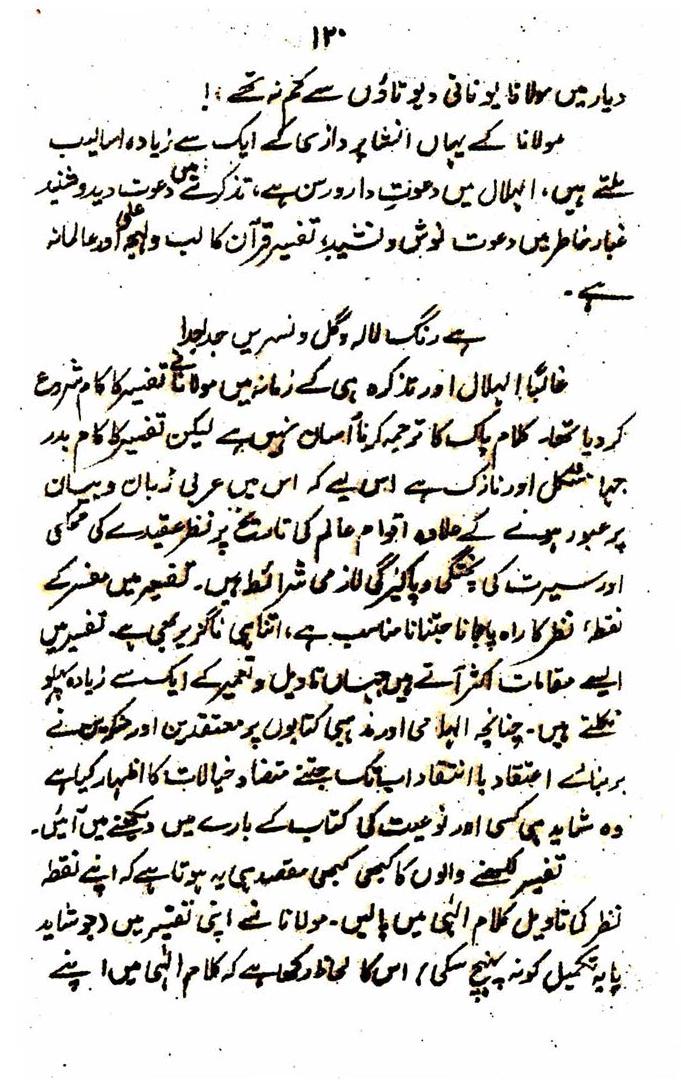 ۱۲۰
دیار میں مولانا یونانی دیوتاؤں سے کم نہ تھے!
مولانا کے یہاں انشا پردازی کے ایک سے زیادہ اسالیب
ملتے ہیں، الہلال میں دعوتِ دار و رسن ہے، تذکرے میں دعوت دید و شنید
غبار خاطر میں دعوت نوش و نشید، تفسیر قرآن کا لب و لہجہ علمی اور عالمانہ
ہے۔
ہے رنگ لالہ و گل و نسریں جدا جدا
غالباً الہلال اور تذکرہ ہی کے زمانہ میں مولانا نے تفسیر کا کام شروع
کر دیا تھا۔ کلام پاک کا ترجمہ کرنا آسان نہیں ہے لیکن تفسیر کا کام بدر
جہا مشکل اور نازک ہے اس لیے کہ اس میں عربی زبان و بیان
پر عبور ہونے کے علاوہ اقوام عالم کی تاریخ پر نظر عقیدے کی محکمی
اور سیرت کی پختگی و پاکیزگی لازمی شرائط ہیں۔ تفسیر میں مفسر کے
نقطۂ نظر کا راہ پا جانا جتنا نا مناسب ہے، اتنا ہی ناگزیر بھی ہے۔ تفسیر میں
ایسے مقامات اکثر آتے ہیں جہاں تاویل و تعبیر کے ایک سے زیادہ پہلو
نکلتے ہیں۔ چنانچہ الہامی اور مذہبی کتابوں پر معتقدین اور منکرین نے
بر بنائے اعتقاد یا انتقاد اب تک جتنے متضاد خیالات کا اظہار کیا ہے
وہ شاید ہی کسی اور نوعیت کی کتاب کے بارے میں دیکھنے میں آئیں۔
تفسیر لکھنے والوں کا کبھی کبھی مقصد ہی یہ ہوتا ہے کہ اپنے نقطہ
نظر کی تاویل کلام الٰہی میں پالیں۔ مولانا نے اپنی تفسیر میں (جو شاید
پایہ تکمیل کو نہ پہنچ سکی) اس کا لحاظ رکھا ہے کہ کلام الٰہی میں اپنے